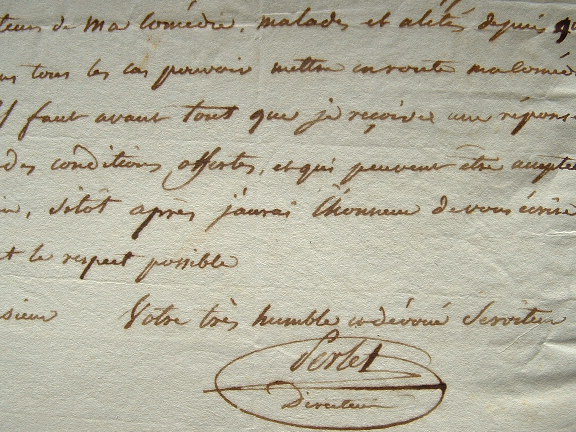 teurs de ma comédie, malades et alités depuis
tous les cas pouvoir mettre en route ma comé
faut avant tout que je reçoive une répons
des conditions offertes, et qui peuvent être accepté
sitôt après j'aurai l'honneur de vous écrire
t le respect possible
sieur Votre très humble et dévoué Serviteur
Perlet
Directeur